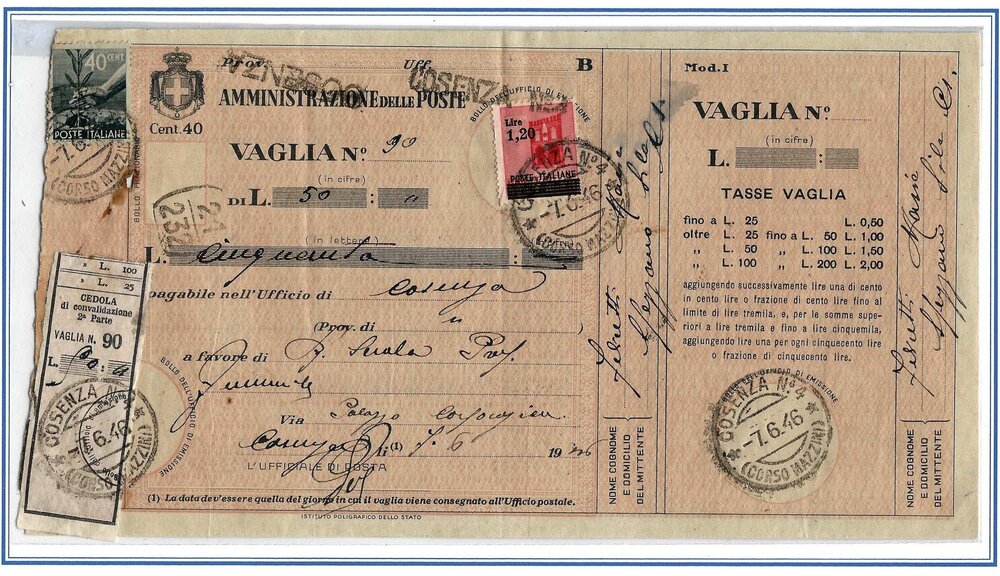 40 CENT.
POSTE ITALIANE
-7.6.46
(CORSO MAZZINI)
Prov. Uff. B
COSENZA
COSENZA Nº4
AMMINISTRAZIONE DELLE POSTE
Cent. 40
BOLLO DELL'UFFICIO DI EMISSIONE
VAGLIA Nº 90
(in cifre)
DI L. 50 : "
21
232
(in lettere)
L. Cinquanta :
pagabile nell'Ufficio di Cosenza
(Prov. di "
a favore di R. Scuola Prof.
Via Palazzo
li (1) 7-6 1946
L'UFFICIALE DI POSTA
(1) La data dev'essere quella del giorno in cui il vaglia viene consegnato all'Ufficio postale.
ISTITUTO POLIGRAFICO DELLO STATO
BOLLO DELL'UFFICIO DI EMISSIONE
Lire
1,20
POSTE ITALIANE
COSENZA Nº 4
-7.6.46
(CORSO MAZZINI)
L. 100
L. 25
CEDOLA
di convalidazione
2ª Parte
VAGLIA N. 90
L.
COSENZA Nº 4
-7.6.46
(CORSO MAZZINI)
NOME COGNOME
E DOMICILIO
DEL MITTENTE
Mod. I
VAGLIA Nº
(in cifre)
L. :
TASSE VAGLIA
fino a L. 25 L. 0,50
oltre L. 25 fino a L. 50 L. 1,00
„ L. 50 „ L. 100 L. 1,50
„ L. 100 „ L. 200 L. 2,00
aggiungendo successivamente lire una di cento
in cento lire o frazione di cento lire fino al
limite di lire tremila, e, per le somme supe-
riori a lire tremila e fino a lire cinquemila,
aggiungendo lire una per ogni cinquecento lire
o frazione di cinquecento lire.
BOLLO DELL'UFFICIO DI EMISSIONE
COSENZA Nº 4
-7.6.46
(CORSO MAZZINI)
NOME COGNOME
E DOMICILIO
DEL MITTENTE